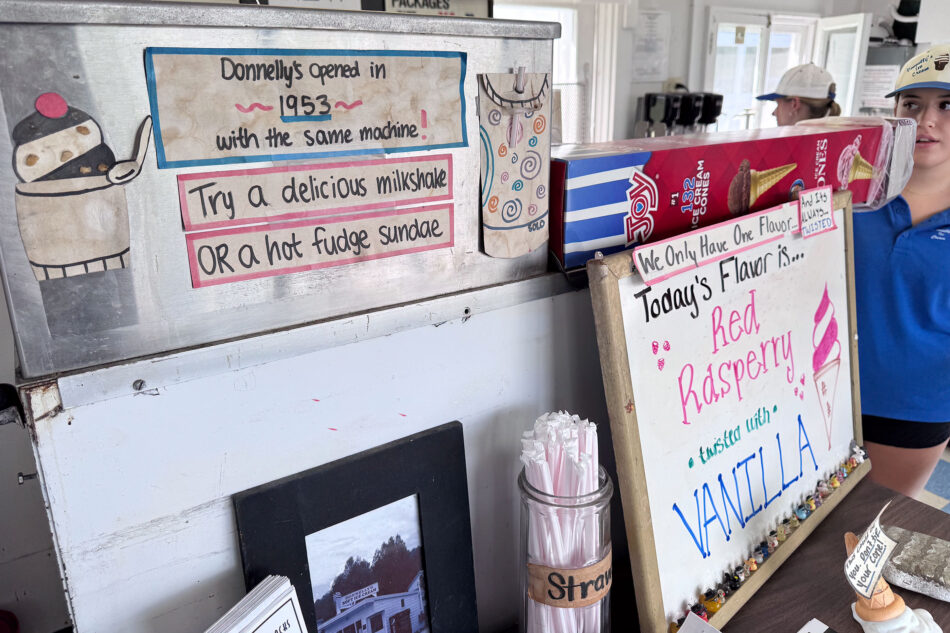 PACKAGES
Donnelly's opened in
1953
with the same machine!
Try a delicious milkshake
OR a hot fudge sundae
SOLO
JOY
#1
132
ICE CREAM
CONES
CONES
We Only Have One Flavor...
And Its
ALWAYS
TWISTED
Today's Flavor is...
Red
Raspberry
• twisted with •
VANILLA
Straw
You Don't be
your Cone!